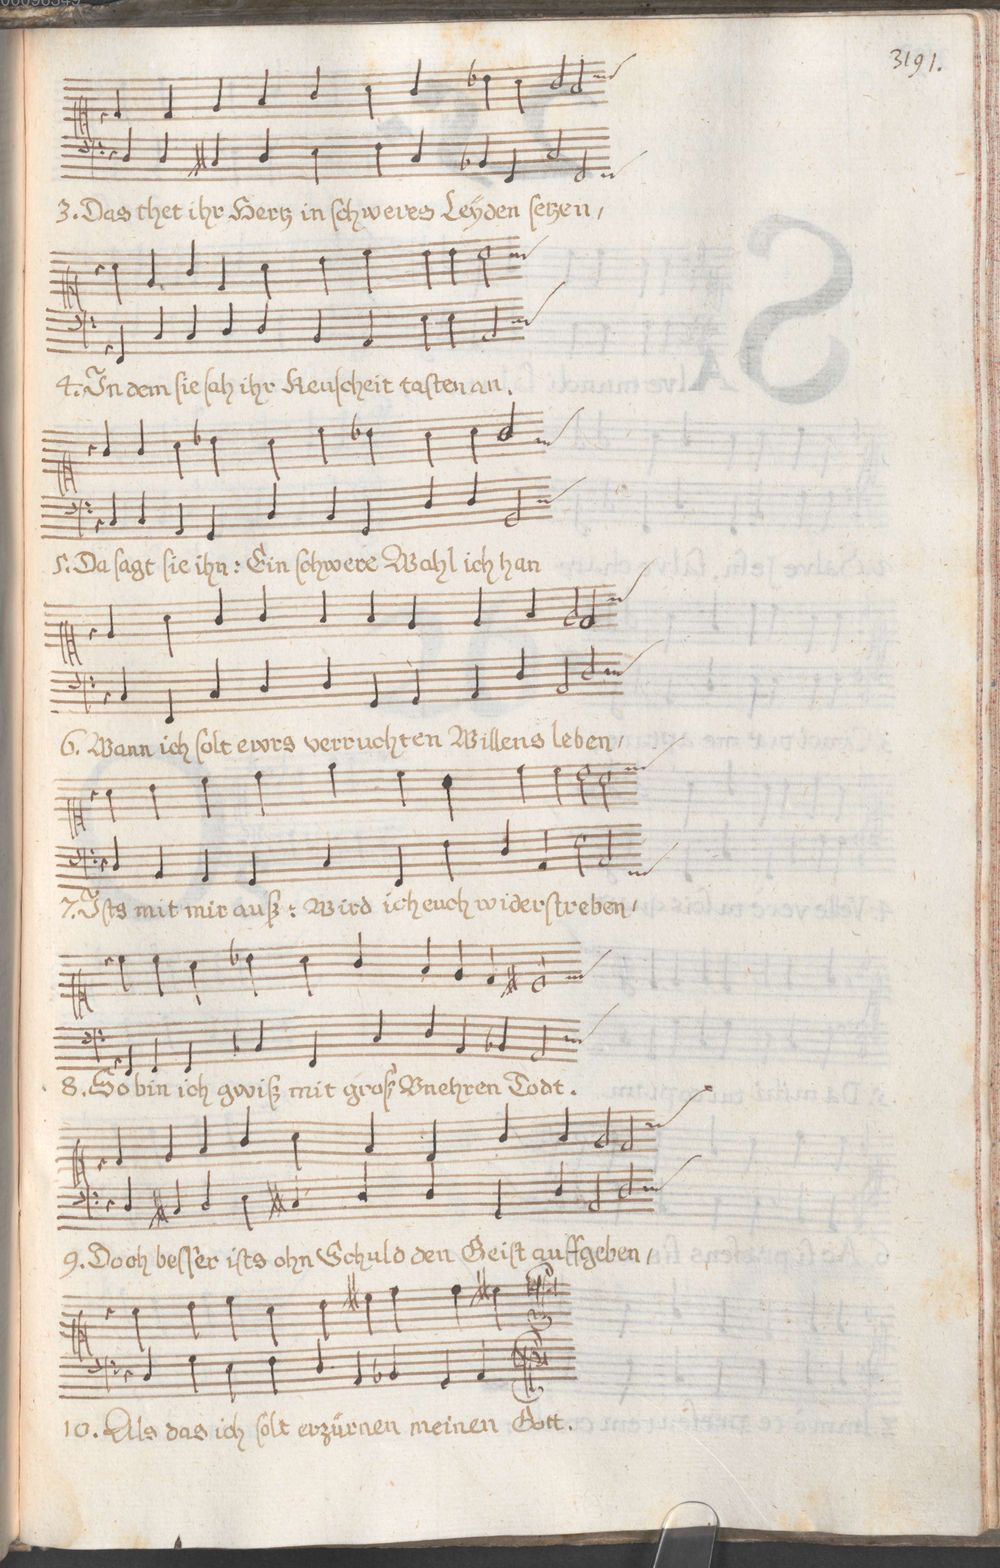 3191.
3. Das thet ihr Hertz in schweres Leyden setzen,
4. In dem sie sah ihr Keuscheit tasten an.
5. Da sagt sie ihn: Ein schwere Wahl ich han
6. Wann ich solt ewrs verruchten Willens leben,
7. Ists mit mir auß: Wird ich euch widerstreben,
8. So bin ich gwiß mit groß Vnehren Todt.
9. Doch besser ists ohn Schuld den Geist auffgeben,
10. Als das ich solt erzürnen meinen Gott.